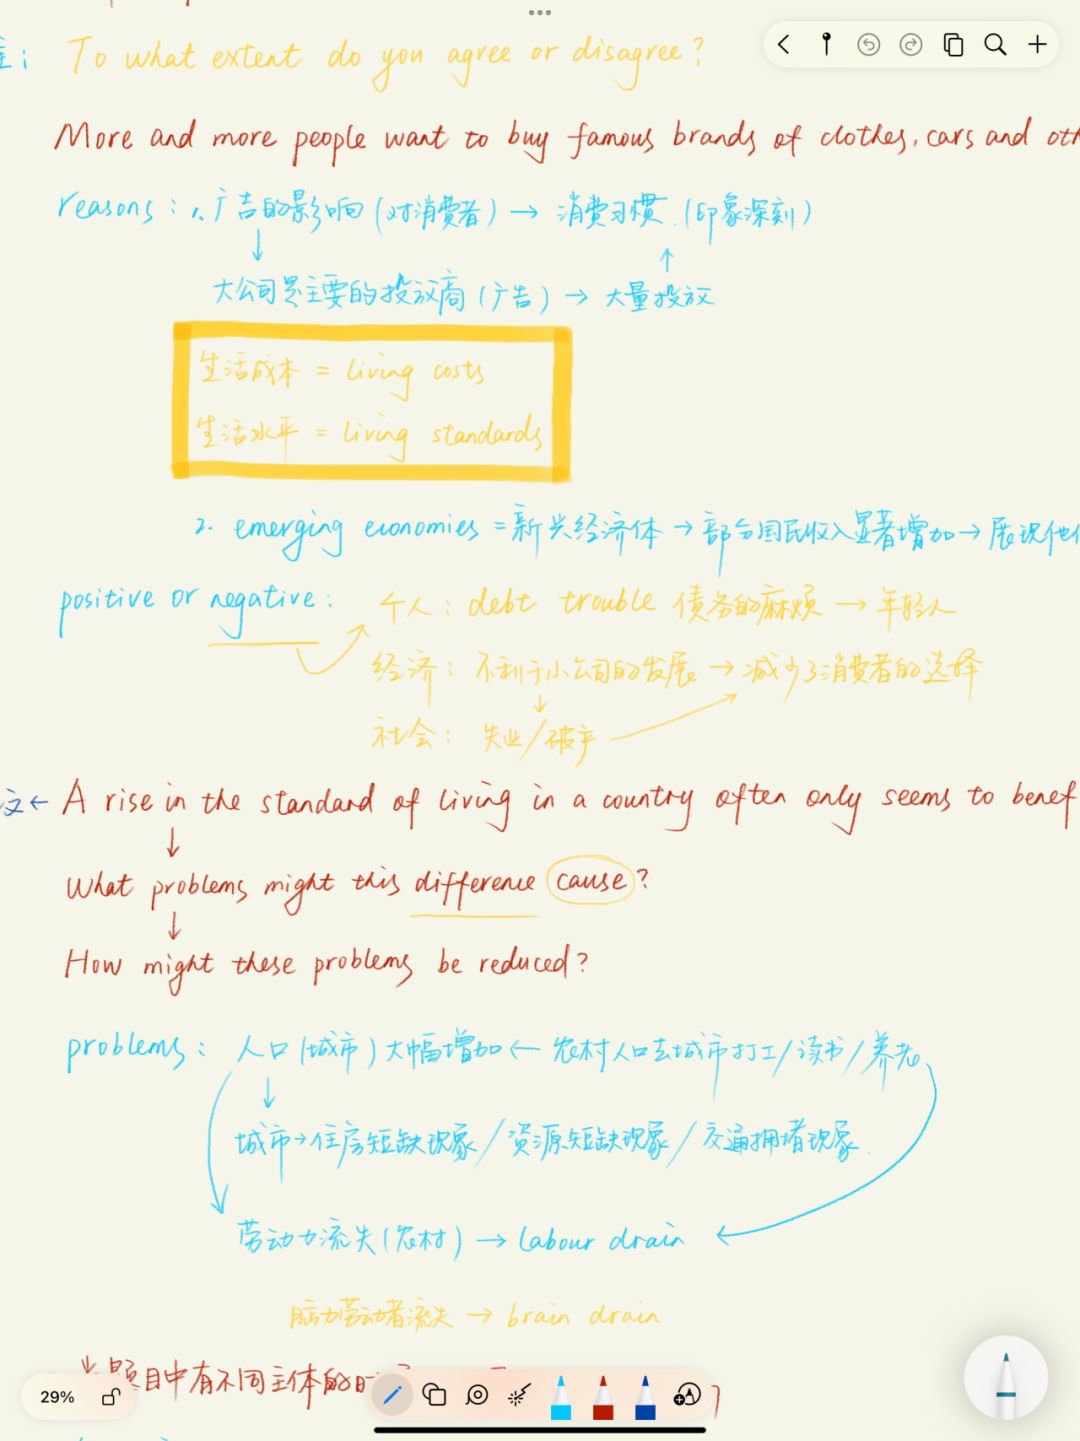 To what extent do you agree or disagree?
More and more people want to buy famous brands of clothes, cars and oth
reasons: 1. 广告的影响(对消费者) → 消费习惯.(印象深刻)
↓ ↑
大公司是主要的投放商(广告) → 大量投放
生活成本 = living costs
生活水平 = living standards
2. emerging economies = 新兴经济体 → 部分国民收入显著增加 → 展现他们
positive or negative: 个人: debt trouble 债务的麻烦 → 年轻人
经济: 不利于小公司的发展 → 减少了消费者的选择
↓
社会: 失业/破产
文← A rise in the standard of living in a country often only seems to benef
↓
What problems might this difference cause?
↓
How might these problems be reduced?
problems: 人口(城市)大幅增加 ← 农村人口去城市打工/读书/养老
↓
城市→住房短缺现象/资源短缺现象/交通拥堵现象.
劳动力流失(农村) → labour drain
脑力劳动者流失 → brain drain
当题目中有不同主体的时
29%